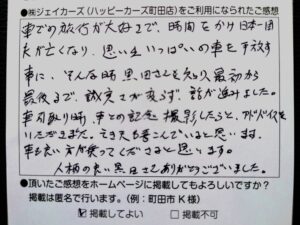 ●㈱ジェイカーズ(ハッピーカーズ町田店)をご利用になられたご感想
車での旅行が大好きで、時間をかけ日本一周
夫が亡くなり、思い出いっぱいの車を手放す
事に、そんな時、黒田さんを知り、最初から
最後まで、誠実さが変らず、話が進みました。
車引取り時、車との記念撮影したらと、アドバイスを
いただきました。きっと夫も喜んでいると思います。
車も良い方が乗ってくださると思います。
人柄の良い黒田さんありがとうございました。
●頂いたご感想をホームページに掲載してもよろしいですか?
掲載は匿名で行います。(例:町田市 K 様)
☑掲載してよい □掲載不可